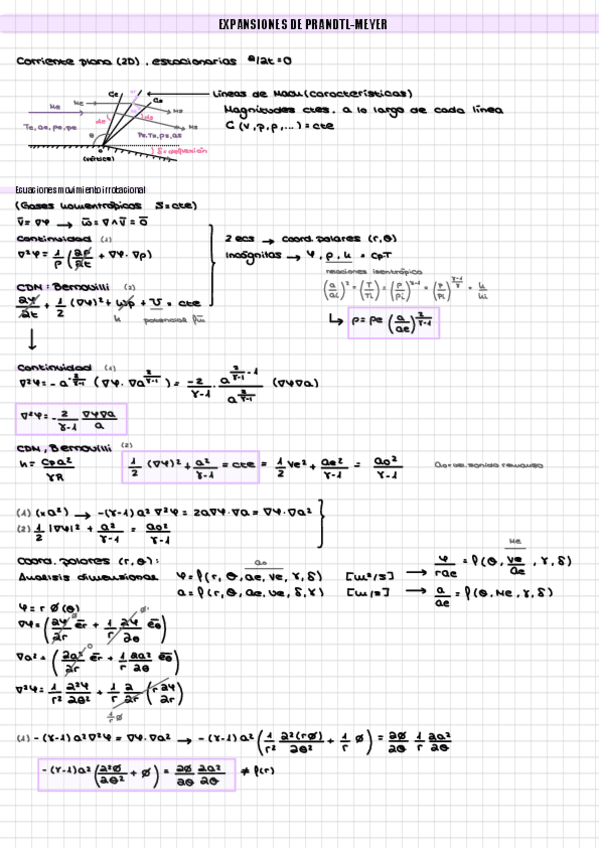 EXPANSIONES DE PRANDTL-MEYER
Corriente plana (2D), estacionarias ∂/∂t=0
Líneas de Mach (características)
Magnitudes ctes. a lo largo de cada línea
G (v, p, ρ, ...) = cte
Me
Te, ae, pe, ρe
θ
(vértice)
δ = deflexión
Ecuaciones movimiento irrotacional
(Gases homentrópicos S=cte)
v̄ = ∇φ → ω̄ = ∇∧v̄ = 0̄
Continuidad (1)
∇²φ = 1/ρ (∂ρ/∂t + ∇φ·∇ρ)
CDM: Bernouilli (2)
∂φ/∂t + 1/2 (∇φ)² + h + U = cte
h potencial
2 ecs → coord. polares (r,θ)
Incógnitas → φ, ρ, h = cpT
relaciones isentrópica
(a/ai)² = (T/Ti) = (ρ/ρi)^(γ-1) = (p/pi)^((γ-1)/γ) = h/hi
↳ ρ = ρe (a/ae)^(2/(γ-1))
Continuidad (1)
∇²φ = -a^(-2/(γ-1)) (∇φ·∇a^(2/(γ-1))) = -2/(γ-1) · a^(2/(γ-1) -1) / a^(2/(γ-1)) (∇φ∇a)
∇²φ = -2/(γ-1) ∇φ∇a/a
CDM, Bernouilli (2)
h = cpa²/γR
1/2 (∇φ)² + a²/(γ-1) = cte = 1/2 ve² + ae²/(γ-1) = ao²/(γ-1)
ao = vel. sonido remanso
(1) (×a²) → -(γ-1) a² ∇²φ = 2a∇φ·∇a = ∇φ·∇a²
(2) 1/2 |∇φ|² + a²/(γ-1) = ao²/(γ-1)
Coord. polares (r,θ):
Análisis dimensional
ao
φ = f(r, θ, ae, ve, γ, δ) [m²/s] → φ/rae = f(θ, ve/ae, γ, δ)
Me
a = f(r, θ, ae, ve, δ, γ) [m/s] → a/ae = f(θ, Me, γ, δ)
φ = r Ø(θ)
∇φ = (∂φ/∂r ēr + 1/r ∂φ/∂θ ēθ)
∇a² = (∂a²/∂r ēr + 1/r ∂a²/∂θ ēθ)
∇²φ = 1/r² ∂²φ/∂θ² + 1/r ∂/∂r (r ∂φ/∂r)
1/r Ø
(1) -(γ-1) a² ∇²φ = ∇φ·∇a² → -(γ-1) a² (1/r² ∂²(rØ)/∂θ² + 1/r Ø) = ∂Ø/∂θ 1/r ∂a²/∂θ
-(γ-1) a² (∂²Ø/∂θ² + Ø) = ∂Ø/∂θ ∂a²/∂θ ≠ f(r)